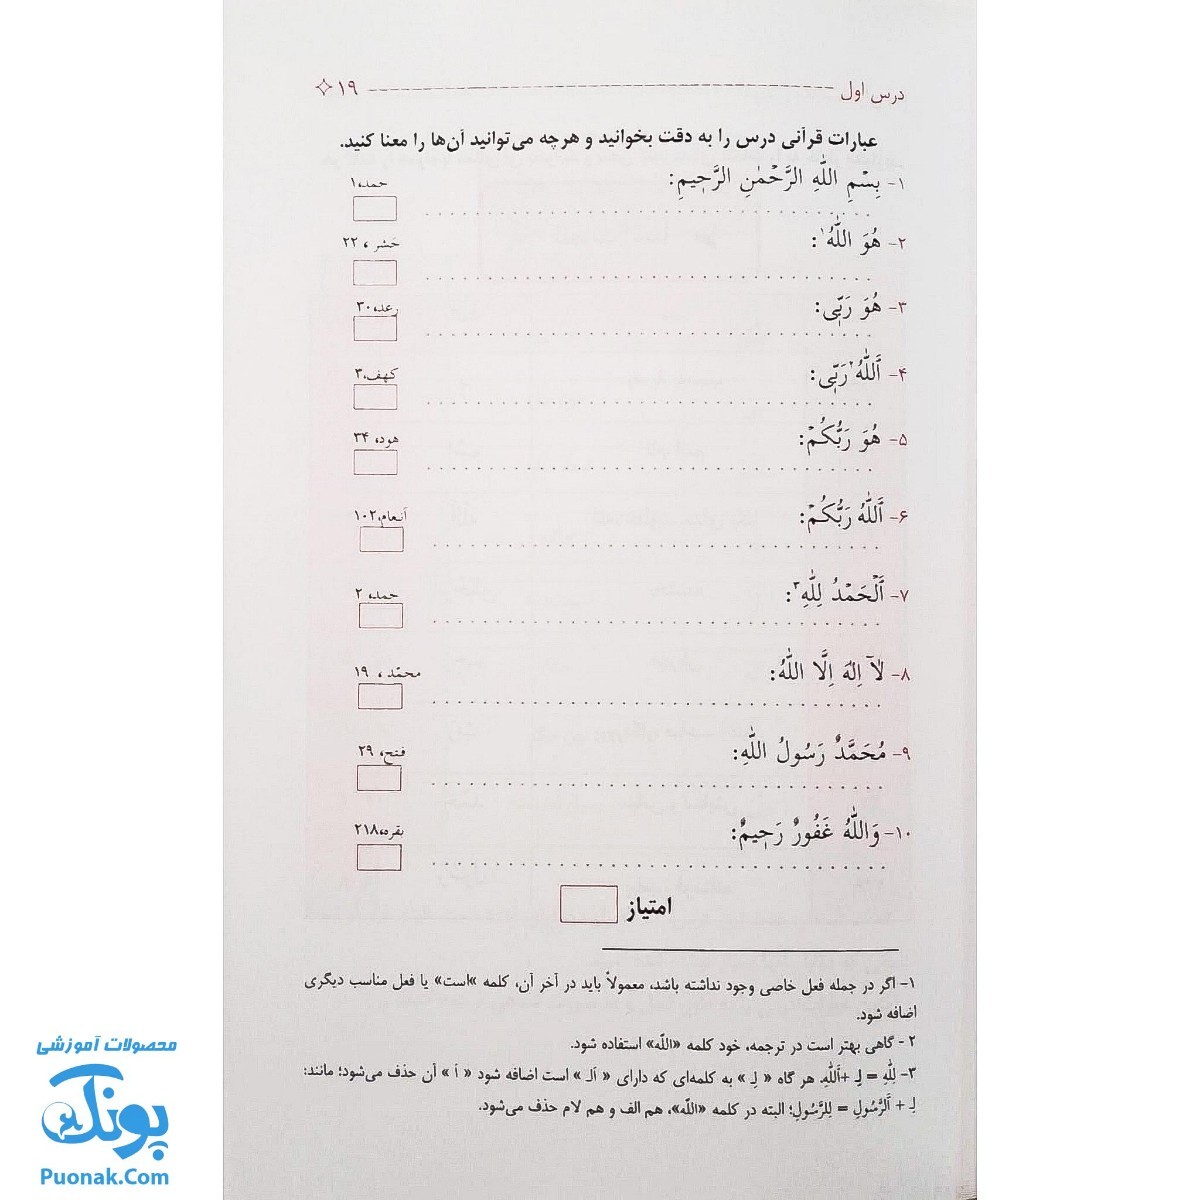 درس اول ۱۹
عبارات قرآنی درس را به دقت بخوانید و هرچه می‌توانید آن‌ها را معنا کنید.
۱- بِسْمِ اللّٰهِ الرَّحْمٰنِ الرَّحیمِ: حمد،۱
۲- هُوَ اللّٰهُ۱: حَشر ، ۲۲
۳- هُوَ رَبّی: رعد،۳۰
۴- اَللّٰهُ۲ رَبّی: کهف،۳
۵- هُوَ رَبُّکُمْ: هود، ۳۴
۶- اَللّٰهُ رَبُّکُمْ: اَنعام،۱۰۲
۷- اَلْحَمْدُ لِلّٰهِ۳: حمد، ۲
۸- لآ اِلٰهَ اِلَّا اللّٰهُ: محمّد ، ۱۹
۹- مُحَمَّدٌ رَسُولُ اللّٰهِ: فتح، ۲۹
۱۰- وَاللّٰهُ غَفُورٌ رَحیمٌ: بقره،۲۱۸
امتیاز
۱- اگر در جمله فعل خاصی وجود نداشته باشد، معمولاً باید در آخر آن، کلمه «است» یا فعل مناسب دیگری
اضافه شود.
۲ - گاهی بهتر است در ترجمه، خود کلمه «اللّه» استفاده شود.
۳- لِلّٰهِ = لِـ +اَللّٰهِ. هر گاه « لِـ » به کلمه‌ای که دارای « اَلـ » است اضافه شود « اَ » آن حذف می‌شود؛ مانند:
لِـ + اَلرَّسُولِ = لِلرَّسُولِ؛ البته در کلمه «اللّه»، هم الف و هم لام حذف می‌شود.
محصولات آموزشی
پونک
Puonak.Com